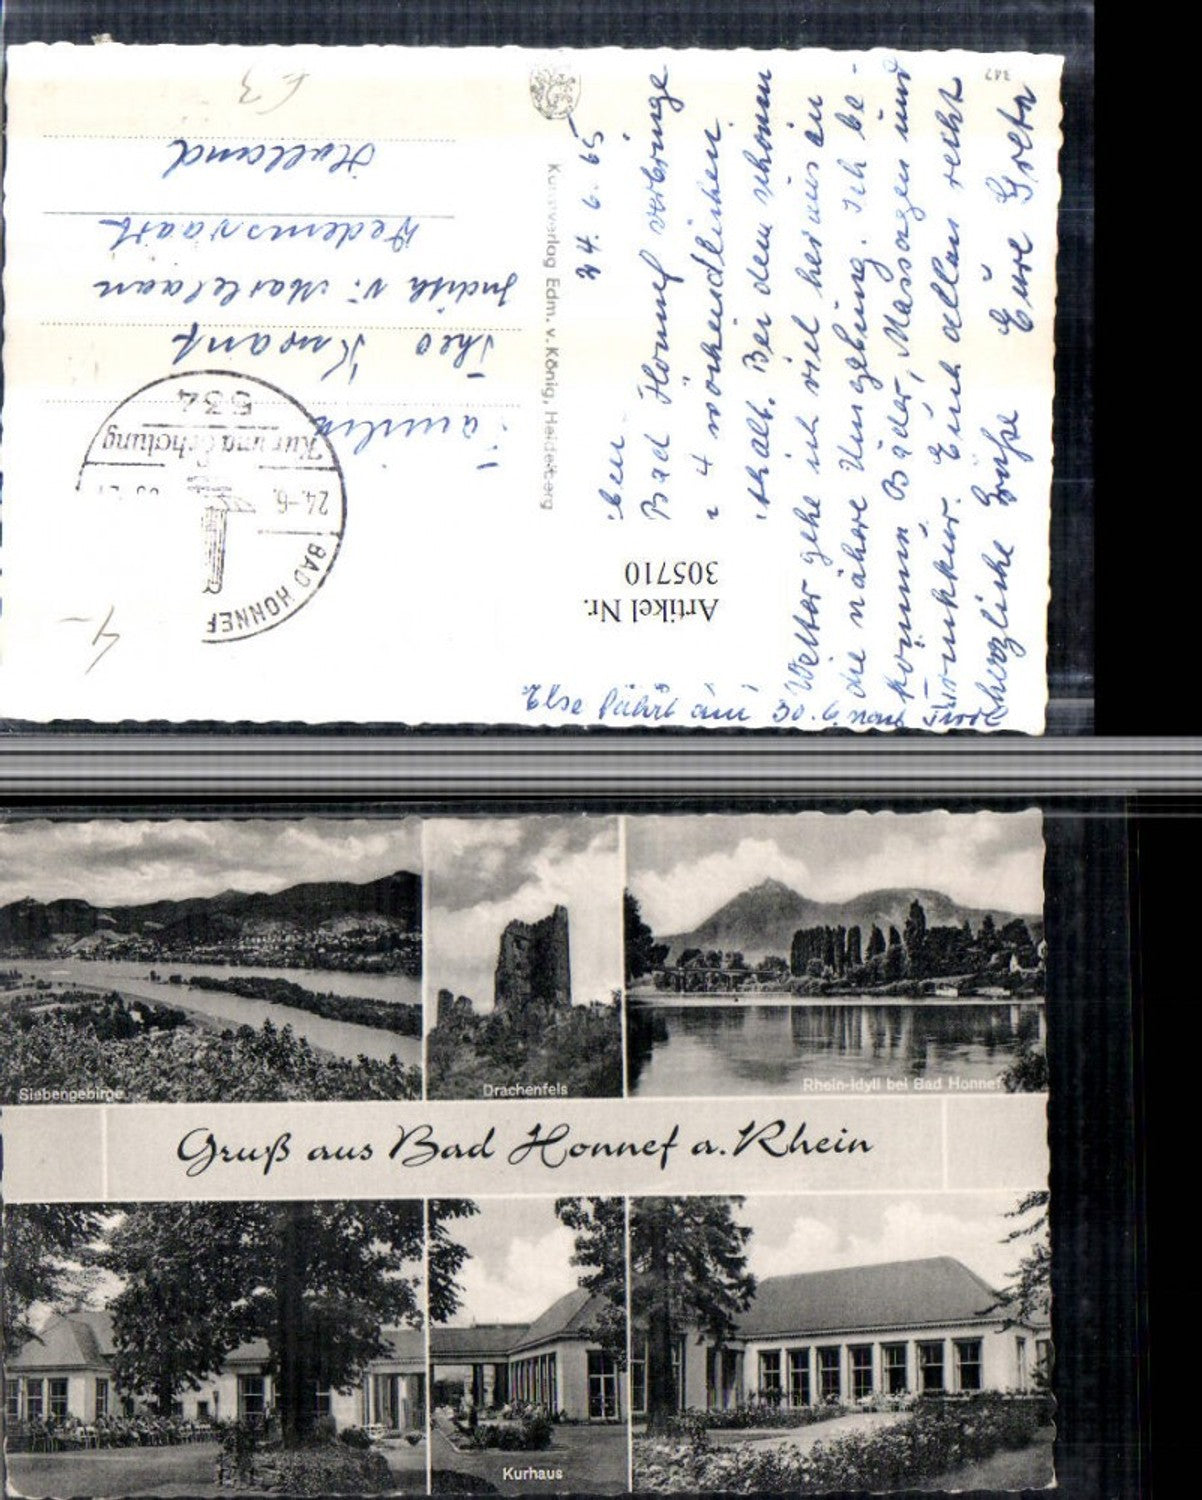 347
24.6.59
Bad Honnef verbringe
4 wöchendlichen
Bei dem schönen
Wetter gehe ich viel heraus in
die nähere Umgebung. Ich be-
komme Bäder, Massagen und
Trinkkur. Euch allen recht
herzliche Grüße Eure Greta
Else fährt am 30.6 nach Tirol
Artikel Nr.
305710
Kunstverlag Edm. v. König, Heidelberg
BAD HONNEF
24.-6.
Kur und Erholung
534
Familie
Theo
Judith
Dedemsvaart
Holland
Siebengebirge
Drachenfels
Rhein-Idyll bei Bad Honnef
Gruß aus Bad Honnef a. Rhein
Kurhaus